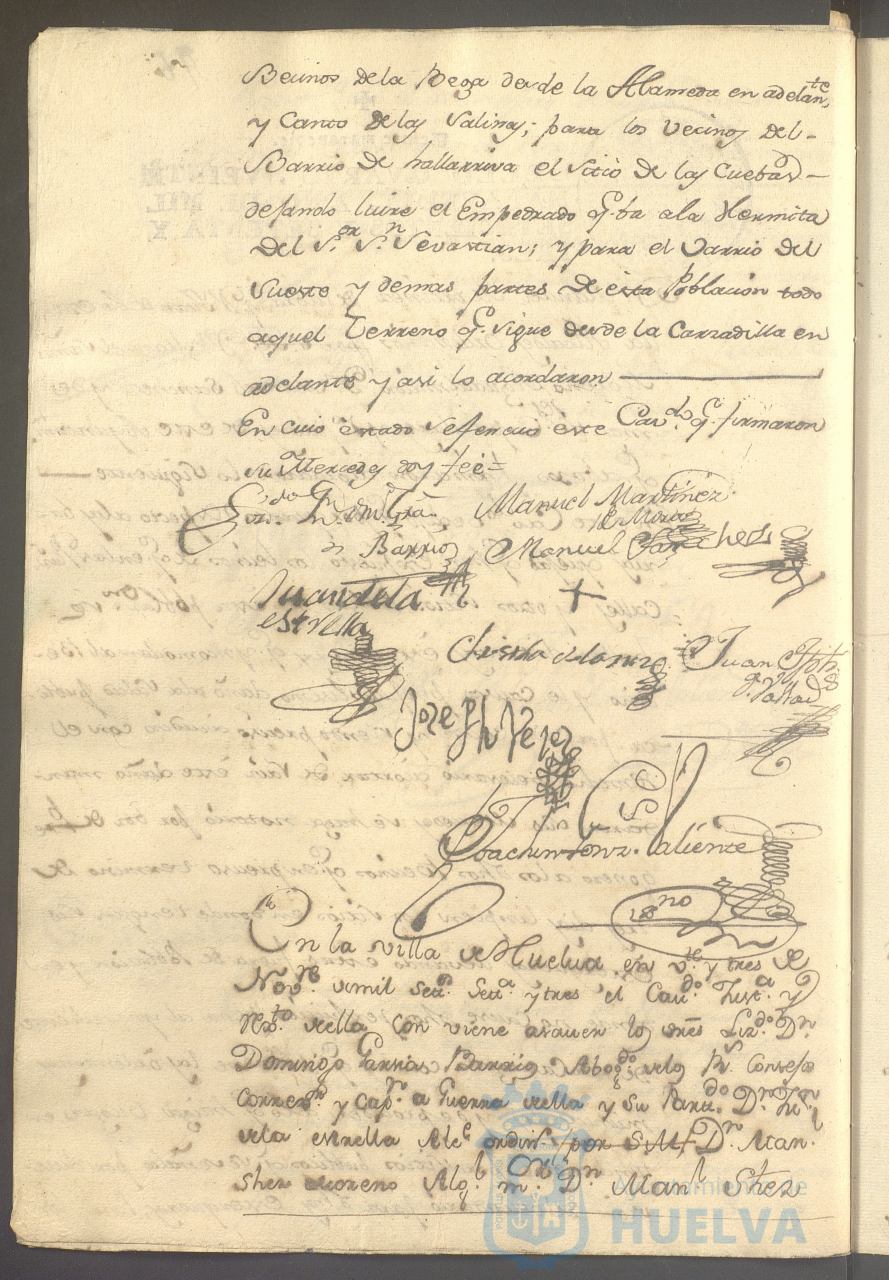 Becinos de la Bega desde la Alameda en adelante
y Canto de las Salinas; para los vecinos del
Barrio de hallarriva el sitio de las Cuebas
dejando livre el Empedrado q.e ba a la Hermita
Del S.or S.n Sevastian; y para el Varrio del
y demas partes de esta Poblacion todo
aquel Terreno q.e sigue desde la Carzadilla en
adelante y asi lo acordaron
En cuio estado sefencio este Cav.do q.e firmaron
sus Mercedes doy fee=
Manuel Martinez
Barrios Manuel Sanchez
Juan de la
estrella
Juan
Joseph Vejez
Joachin Gonz. Valiente
En la villa de Huelva en v.te y tres de
Nov.re de mil Set.s Set.a y tres el Cav.do Just.a y
Rex.to della conviene asaver los Sres Liz.do D.n
Domingo Garsia Barrios Abog.do de los R.s Consejos
Correx.r y Cap.n a Guerra della y su Part.do D.n Ju.
de la estrella Alc.e ordin.o por S.M. D.n Man.l
Shez Moreno Alg.l m.r D.n Man.l Shez
Ayuntamiento de
HUELVA